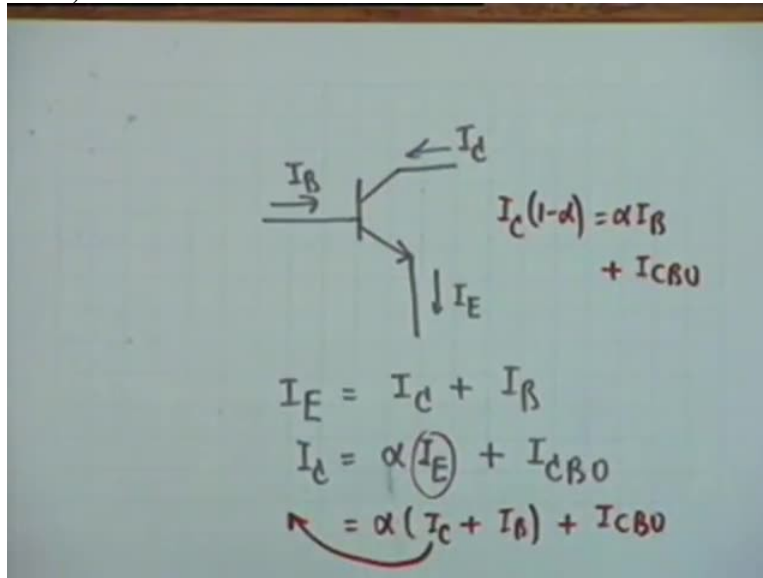 I_B
I_C
I_C(1-α) = αI_B
+ I_CBO
I_E
I_E = I_C + I_B
I_C = α I_E + I_CBO
= α(I_C + I_B) + I_CBO